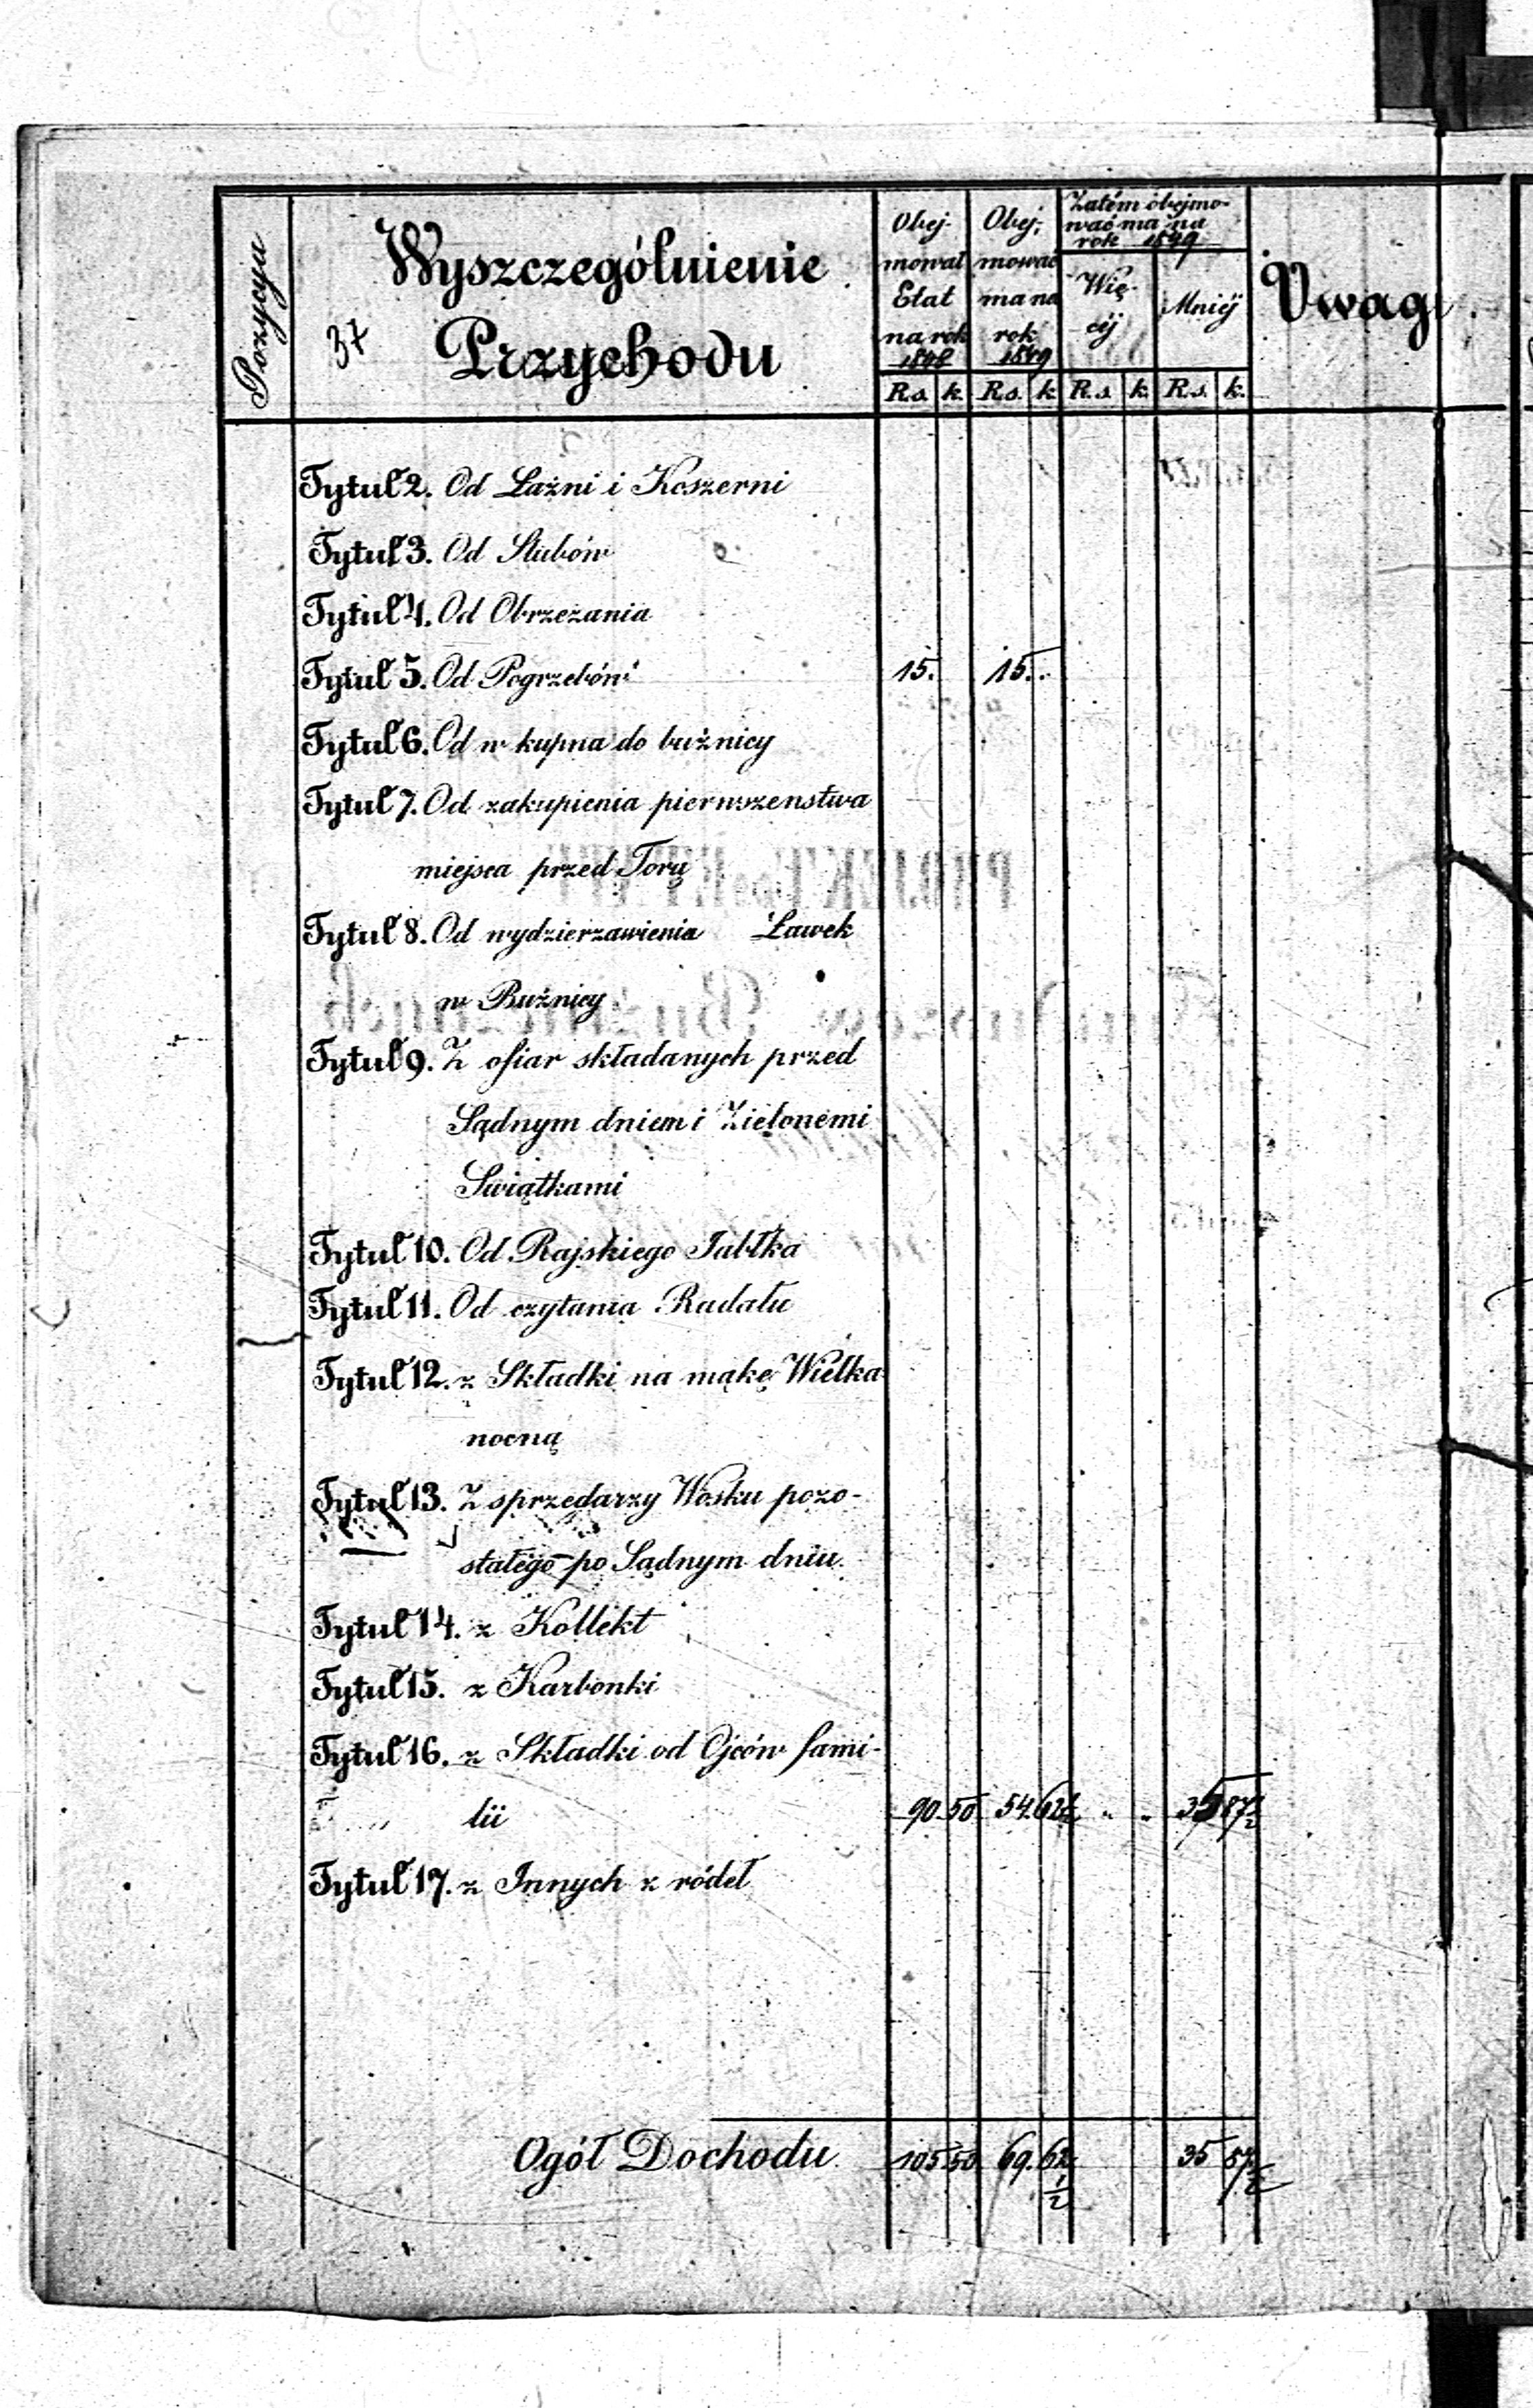 Pozycja
37
Wyszczególnienie
Przychodu
Obej-
mował
Etat
na rok
1848
Obej-
mować
ma na
rok
1849
Zatém obejmo-
wać ma na
rok 1849
Wię-
céj
Mniéj
Uwagi.
R.s. k. R.s. k R.s k. R.s. k.
Tytuł 2. Od Łaźni i Koszerni
Tytuł 3. Od Slubów
Tytuł 4. Od Obrzezania
Tytuł 5. Od Pogrzebów 15. 15.
Tytuł 6. Od w kupna do buźnicy
Tytuł 7. Od zakupienia pierwszenstwa
miejsca przed Torą
Tytuł 8. Od wydzierzawienia Ławek
w Buźnicy
Tytuł 9. Z ofiar składanych przed
Sądnym dniem i Zielonemi
Swiątkami
Tytuł 10. Od Rajskiego Jabłka
Tytuł 11. Od czytania Radału
Tytuł 12. z Składki na mąkę Wielka
nocną
Tytuł 13. Z sprzedarzy Wosku pozo-
stałego po Sądnym dniu
Tytuł 14. z Kollekt
Tytuł 15. z Karbonki
Tytuł 16. z Składki od Ojców fami-
lii 90 50 54. 62½ " " 35 87½
Tytuł 17. z Innych z ródeł
Ogół Dochodu 105 50 69. 62½ 35 87½